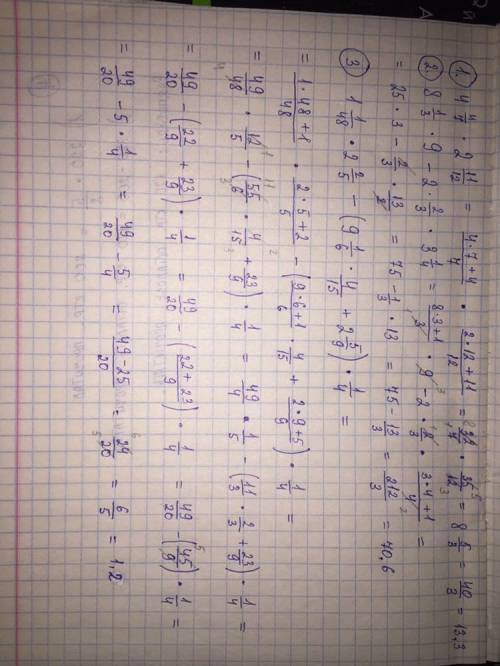 1. 4 4/7 · 2 11/12 = (4·7+4)/7 · (2·12+11)/12 = 32/7 · 35/12 = 8 · 5/3 = 40/3 = 13,3
2. 8 1/3 · 9 − 2 · 2/3 · 3 1/4 = (8·3+1)/3 · 9 − 2 · 2/3 · (3·4+1)/4 =
= 25 · 3 − 2/3 · 13/2 = 75 − 1/3 · 13 = 75 − 13/3 = 212/3 = 70.6
3. 1 1/48 · 2 2/5 − (9 1/6 · 4/15 + 2 5/9) · 1/4 =
= (1·48+1)/48 · (2·5+2)/5 − ((9·6+1)/6 · 4/15 + (2·9+5)/9) · 1/4 =
= 49/48 · 12/5 − (55/6 · 4/15 + 23/9) · 1/4 = 49/4 · 1/5 − (11/3 · 2/3 + 23/9) · 1/4 =
= 49/20 − (22/9 + 23/9) · 1/4 = 49/20 − ((22+23)/9) · 1/4 = 49/20 − (45/9) · 1/4 =
= 49/20 − 5 · 1/4 = 49/20 − 5/4 = (49−25)/20 = 24/20 = 6/5 = 1.2